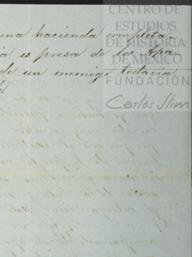 CENTRO DE
ESTUDIOS
DE HISTORIA
DE MÉXICO
FUNDACIÓN
Carlos Slim
una hacienda completa,
es presa de los Apa-
de un enemigo todavia